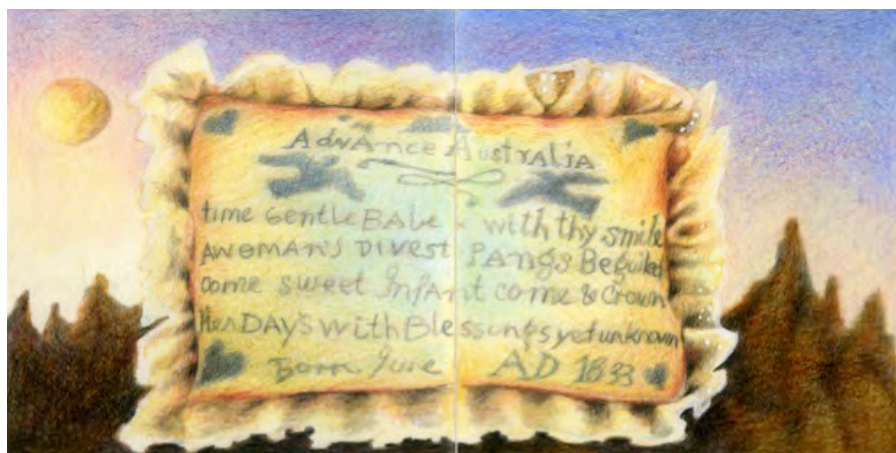 AdvAnce AustRALiA
time GentLe BABe with thy smile
AWOMAN'S DIVEST PANGS Beguiled
come sweet InfAnt come & Crown
Her DAY'S with Blessongs yet unknown
Born June AD 1833